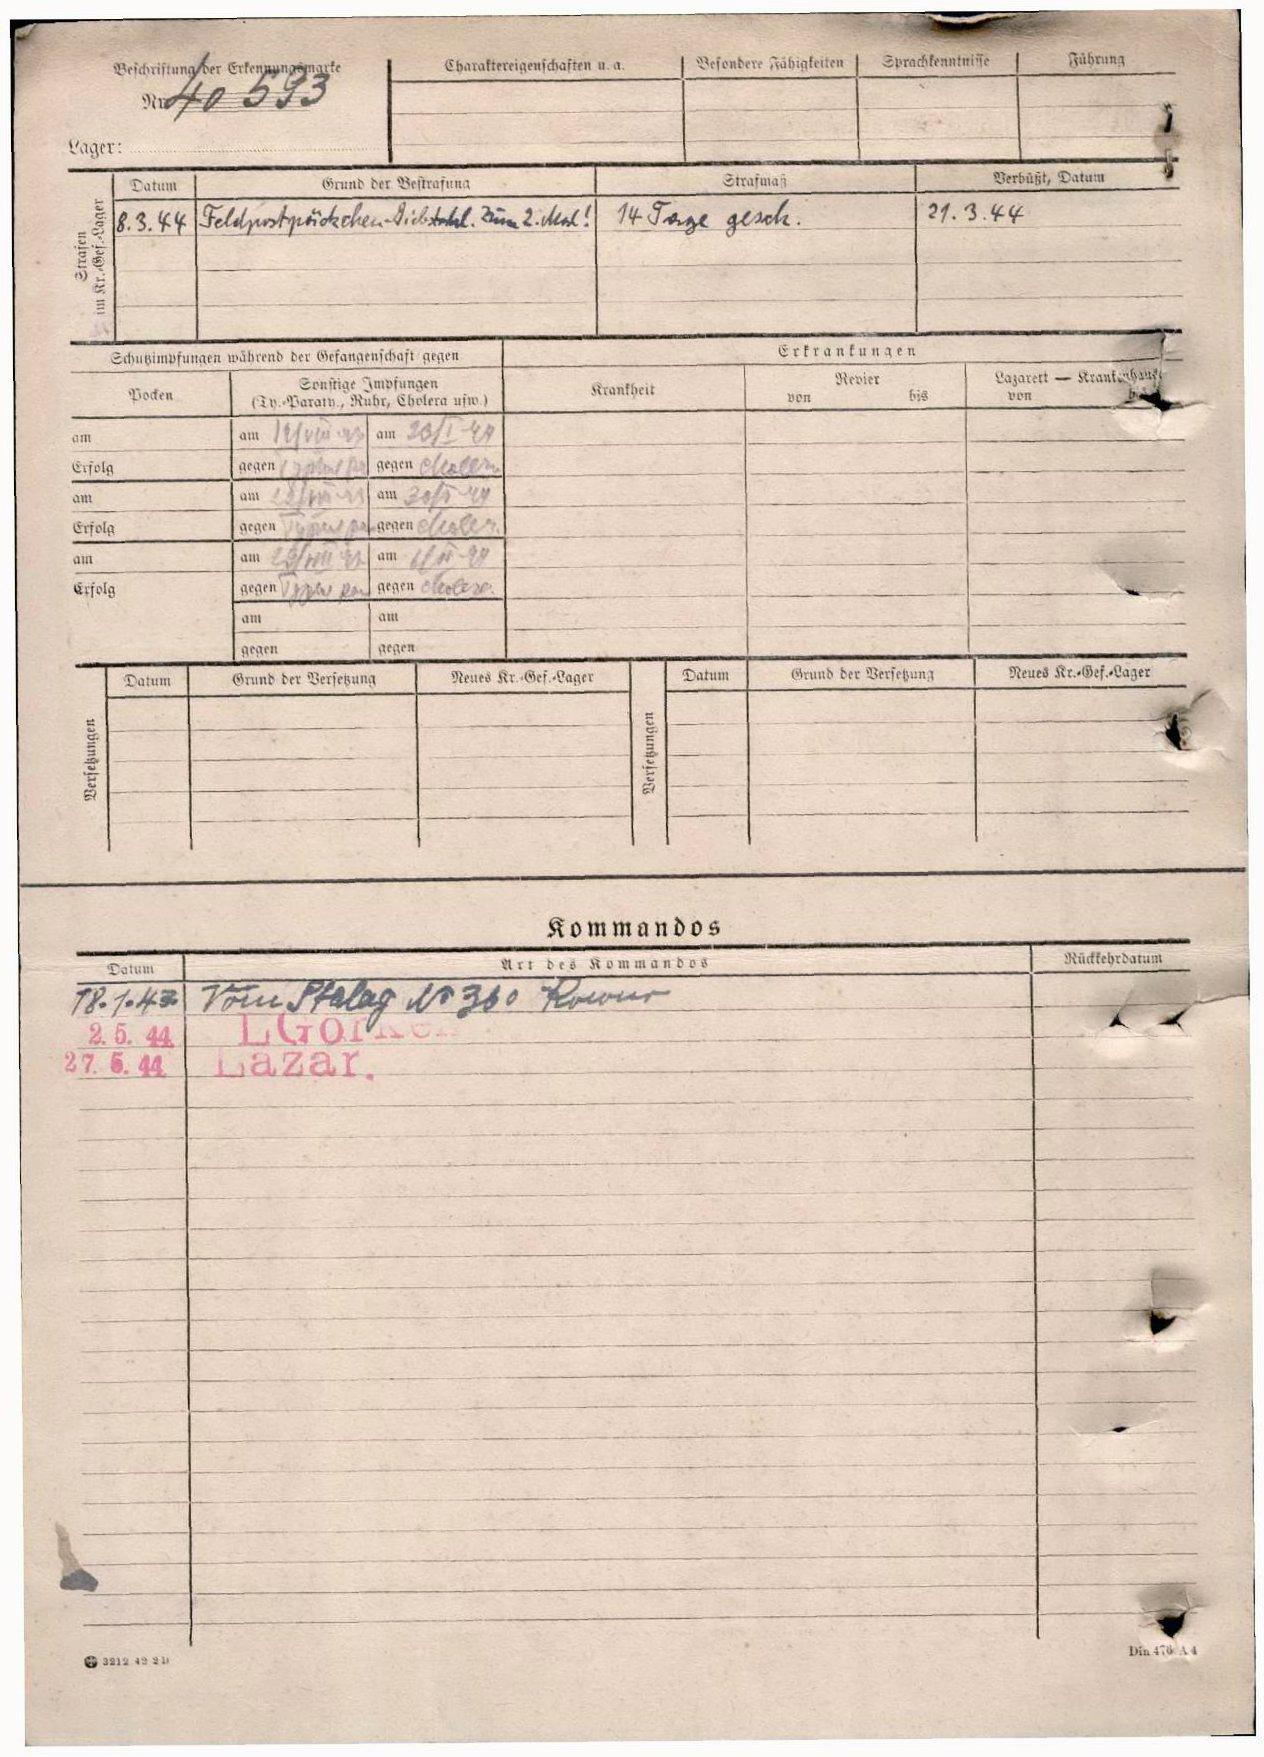 Beschriftung der Erkennungsmarke
Nr. 40 593
Lager:
Charaktereigenschaften u. a.
Besondere Fähigkeiten
Sprachkenntnisse
Führung
Strafen im Kr.-Gef.-Lager
Datum
Grund der Bestrafung
Strafmaß
Verbüßt, Datum
8.3.44 Feldpostpäckchen-Diebstahl. Zum 2. Mal! 14 Tage gesch. 21.3.44
Schutzimpfungen während der Gefangenschaft gegen
Erkrankungen
Pocken
Sonstige Impfungen
(Ty.-Paraty., Ruhr, Cholera usw.)
Krankheit
Revier
von bis
Lazarett — Krankenhaus
von bis
am am am
Erfolg gegen gegen Cholera
am am am
Erfolg gegen gegen Choler.
am am am
Erfolg gegen gegen Cholera
am am
gegen gegen
Versetzungen
Datum
Grund der Versetzung
Neues Kr.-Gef.-Lager
Versetzungen
Datum
Grund der Versetzung
Neues Kr.-Gef.-Lager
Kommandos
Datum
Art des Kommandos
Rückkehrdatum
18.1.43 Vom Stalag № 360 Rowno
2. 5. 44 LGörken
27. 5. 44 Lazar.
3212 42 2 D
Din 476 A 4